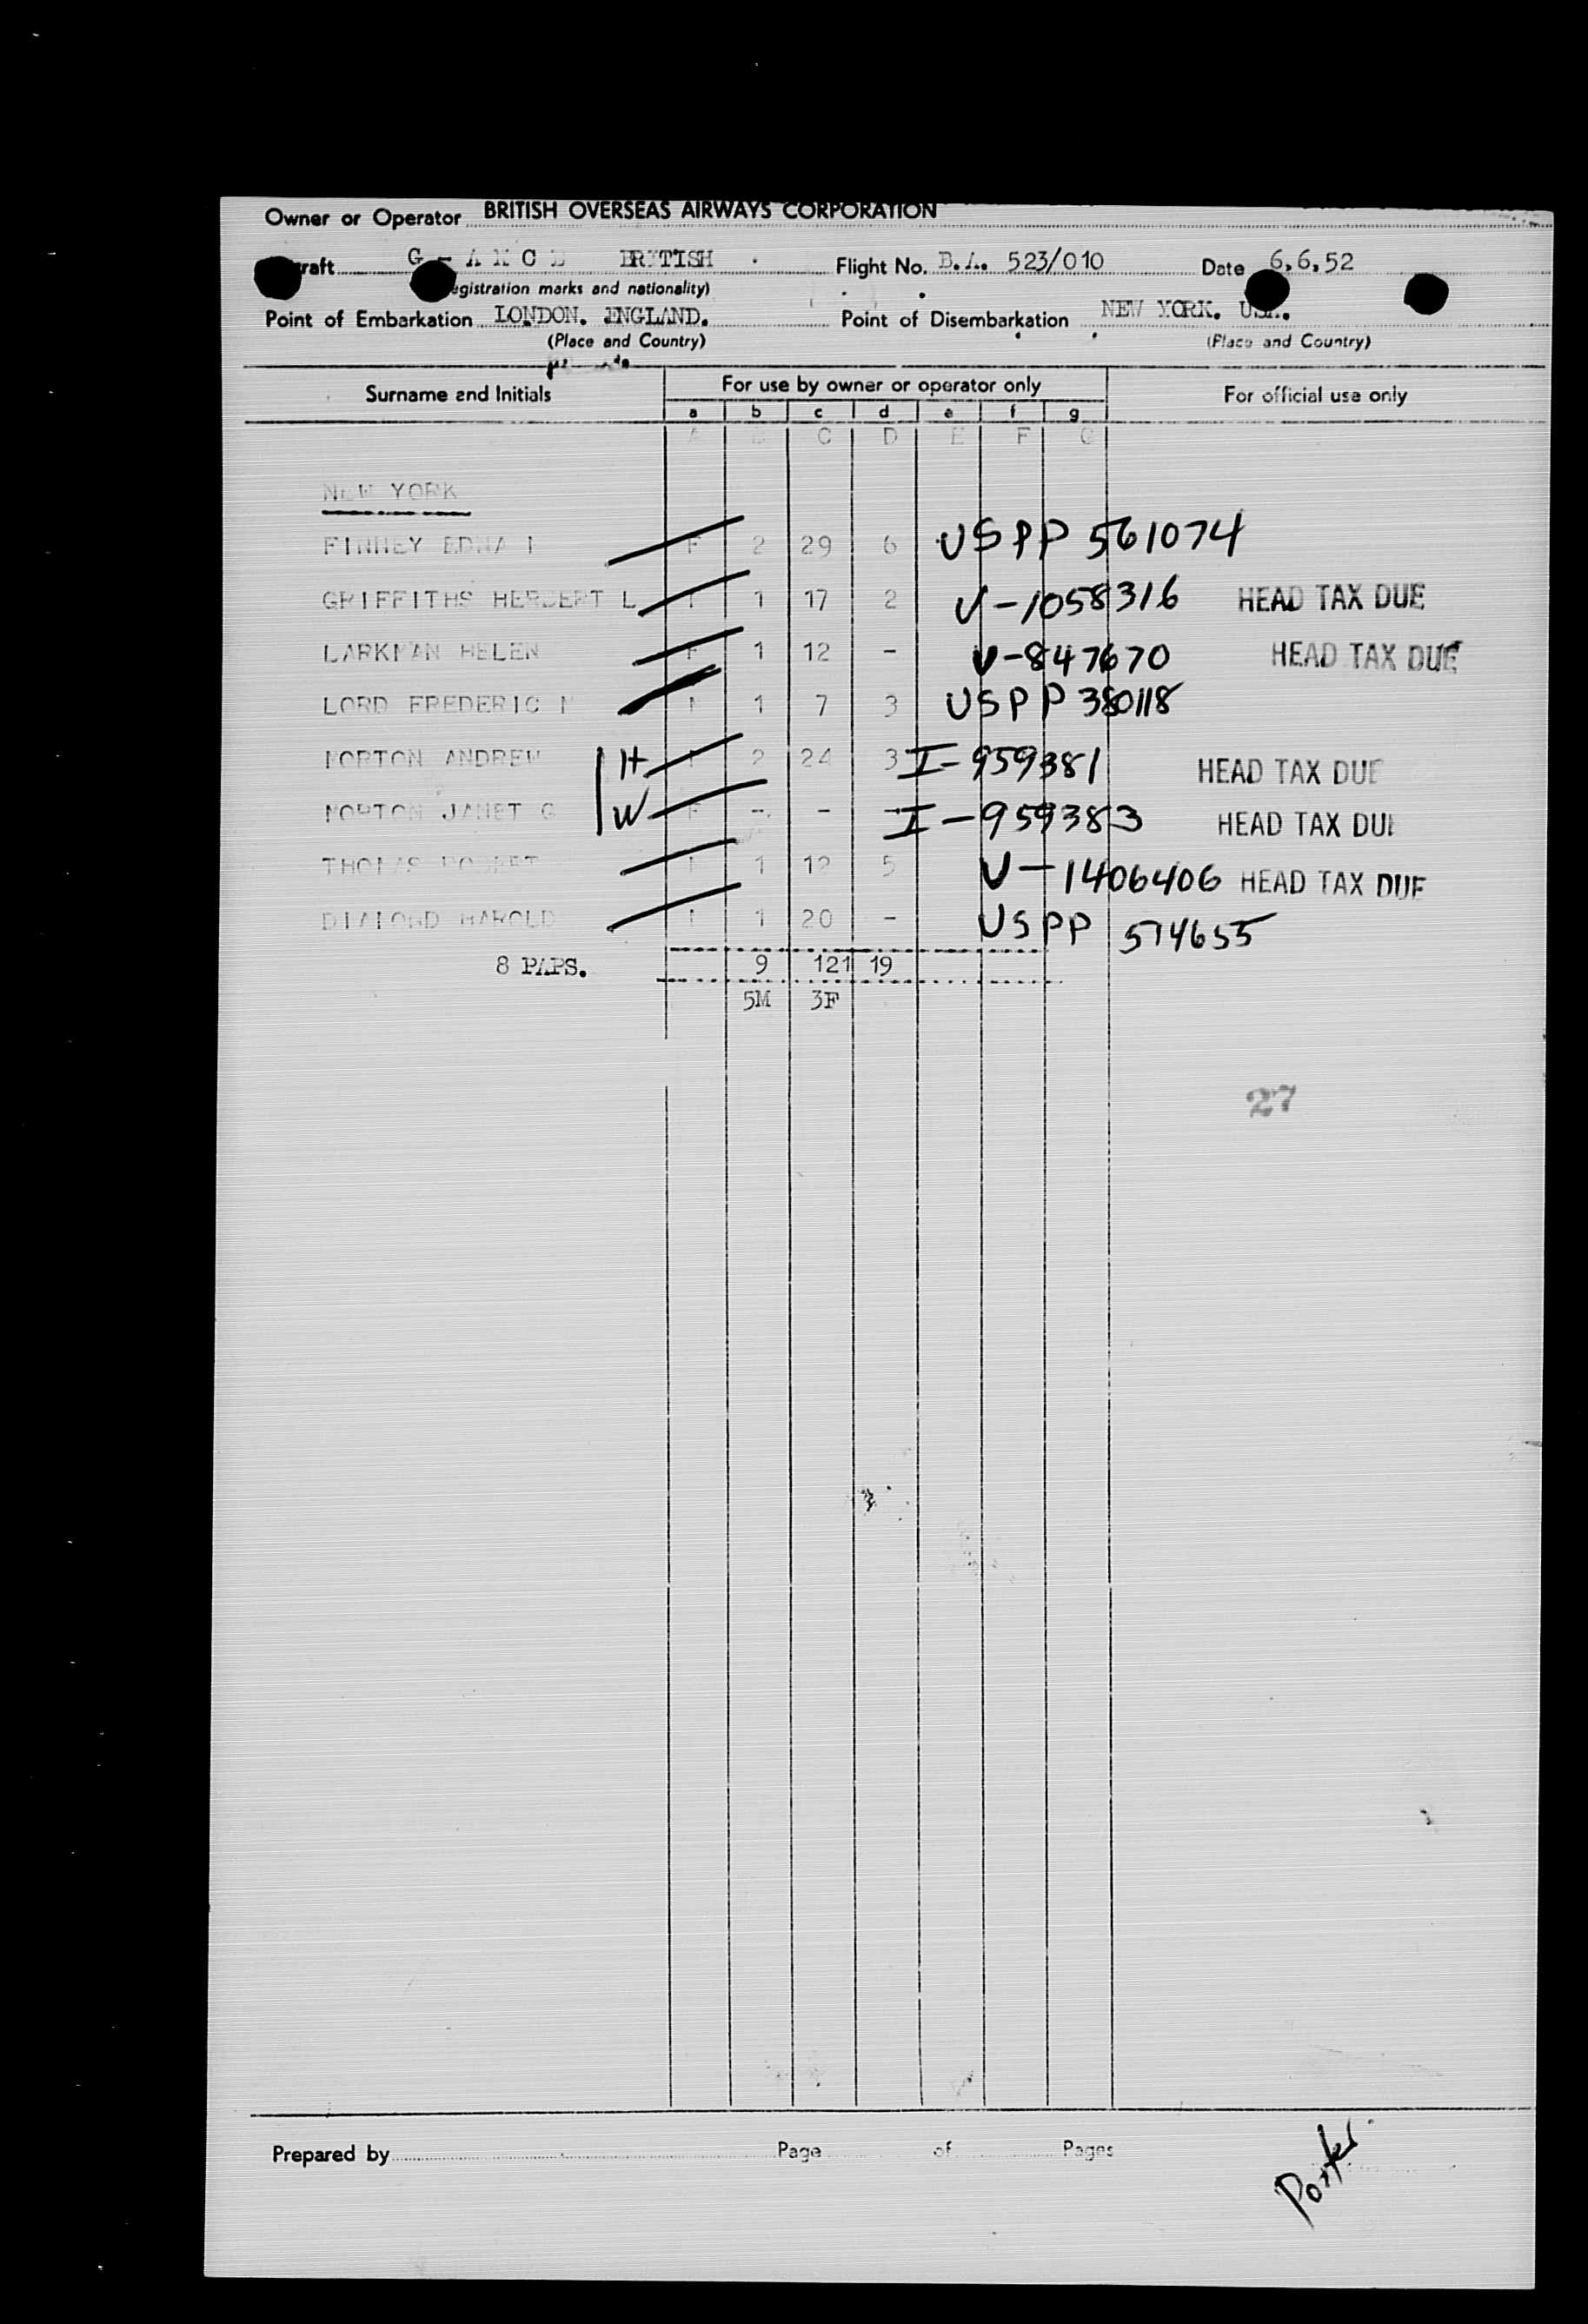 Owner or Operator BRITISH OVERSEAS AIRWAYS CORPORATION
raft G - A BRITISH Flight No. B.A. 523/010 Date 6,6,52
egistration marks and nationality)
Point of Embarkation LONDON. ENGLAND. Point of Disembarkation NEW YORK. USA.
(Place and Country) (Place and Country)
Surname and Initials For use by owner or operator only For official use only
a b c d e f g
A B C D E F G
NEW YORK
FINNEY EDNA F 2 29 6 USPP 561074
GRIFFITHS HERBERT L 1 17 2 V-1058316 HEAD TAX DUE
LARKMAN HELEN F 1 12 - V-847670 HEAD TAX DUE
LORD FREDERIC M 1 7 3 USPP 380118
MORTON ANDREW H 2 24 3 I-959381 HEAD TAX DUE
MORTON JANET G W F - - - I-959383 HEAD TAX DUE
THOMAS ROBERT 1 12 5 V-1406406 HEAD TAX DUE
HAROLD 1 20 - USPP 574655
8 PAPS. 9 121 19
5M 3F
27
Prepared by Page of Pages
Porter